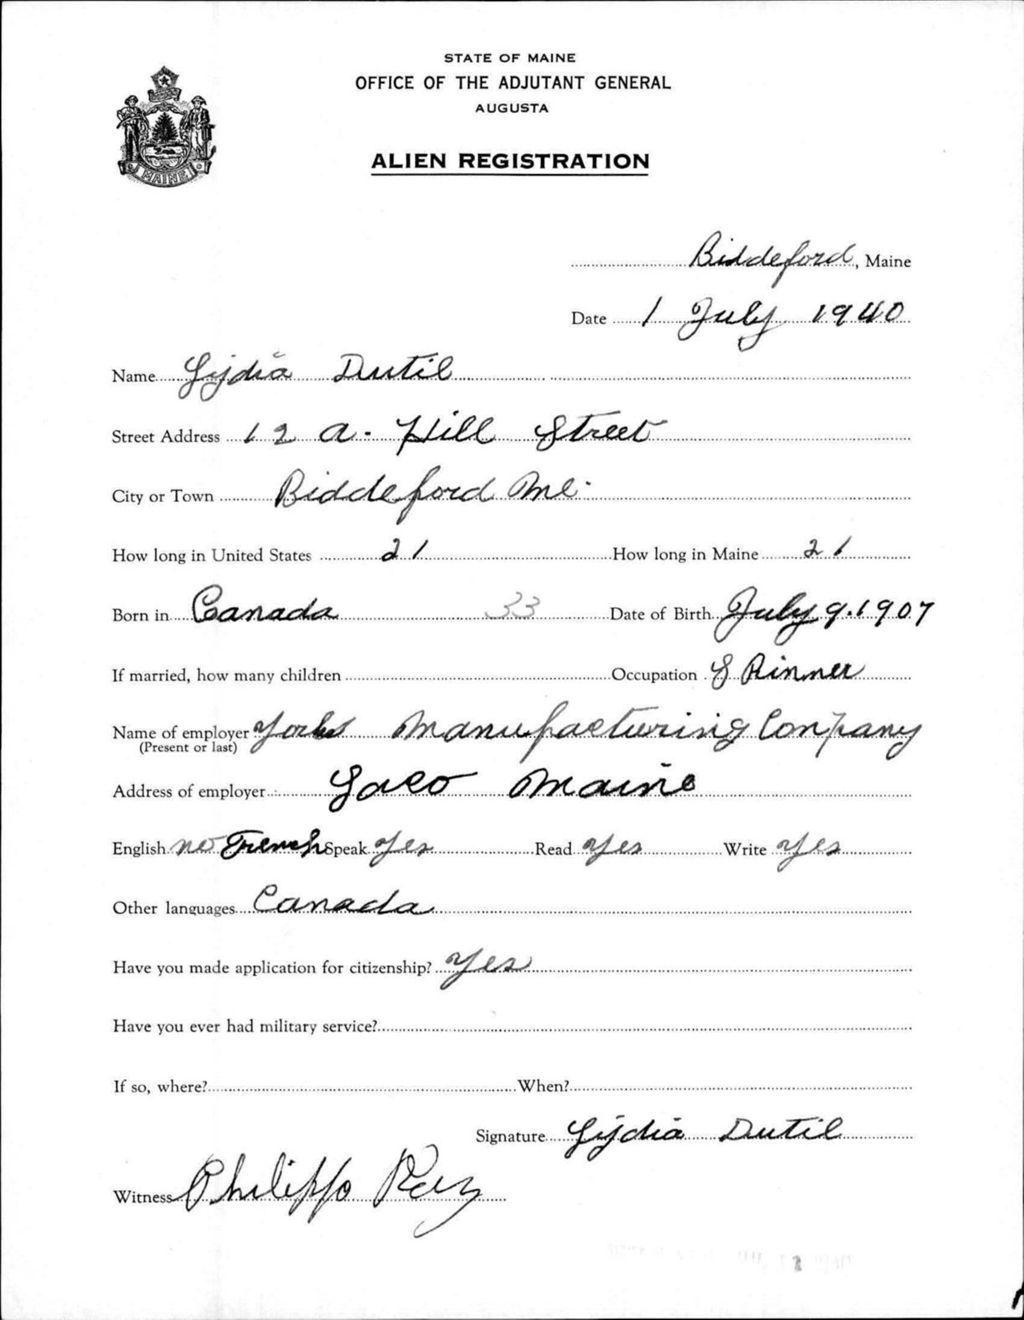 STATE OF MAINE
OFFICE OF THE ADJUTANT GENERAL
AUGUSTA
MAINE
ALIEN REGISTRATION
Biddeford, Maine
Date 1 July 1940
Name Lydia Dutil
Street Address 12 a. Hill Street
City or Town Biddeford Me.
How long in United States 21 How long in Maine 21
Born in Canada 33 Date of Birth July 9. 1907
If married, how many children Occupation S Pinner
Name of employer Yorks Manufacturing Company
(Present or last)
Address of employer Saco Maine
English no French Speak yes Read yes Write yes
Other languages Canada
Have you made application for citizenship? yes
Have you ever had military service?
If so, where? When?
Signature Lydia Dutil
Witness Philippe Roy